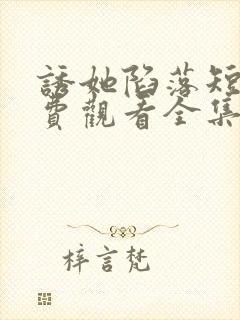 誘她陷落短
費觀看全集
梓言梵